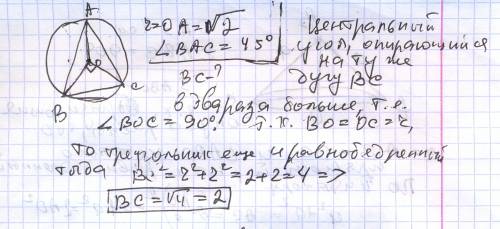 A
r=OA=√2
∠BAC=45°
BC-?
Центральный
угол, опирающийся
на ту же
дугу BC
O
C
B
в два раза больше, т.е.
∠BOC=90°. т.к. BO=OC=r,
то треугольник еще и равнобедренный
тогда BC²=r²+r²=2+2=4 =>
BC=√4=2